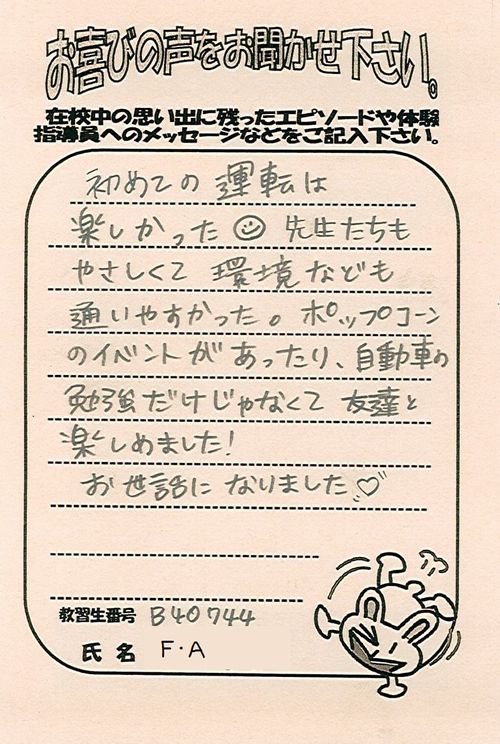 お喜びの声をお聞かせ下さい。
在校中の思い出に残ったエピソードや体験
指導員へのメッセージなどをご記入下さい。
初めての運転は
楽しかった☺ 先生たちも
やさしくて 環境なども
通いやすかった。ポップコーン
のイベントがあったり、自動車の
勉強だけじゃなくて 友達と
楽しめました!
お世話になりました♡
教習生番号 B40744
氏名 F・A